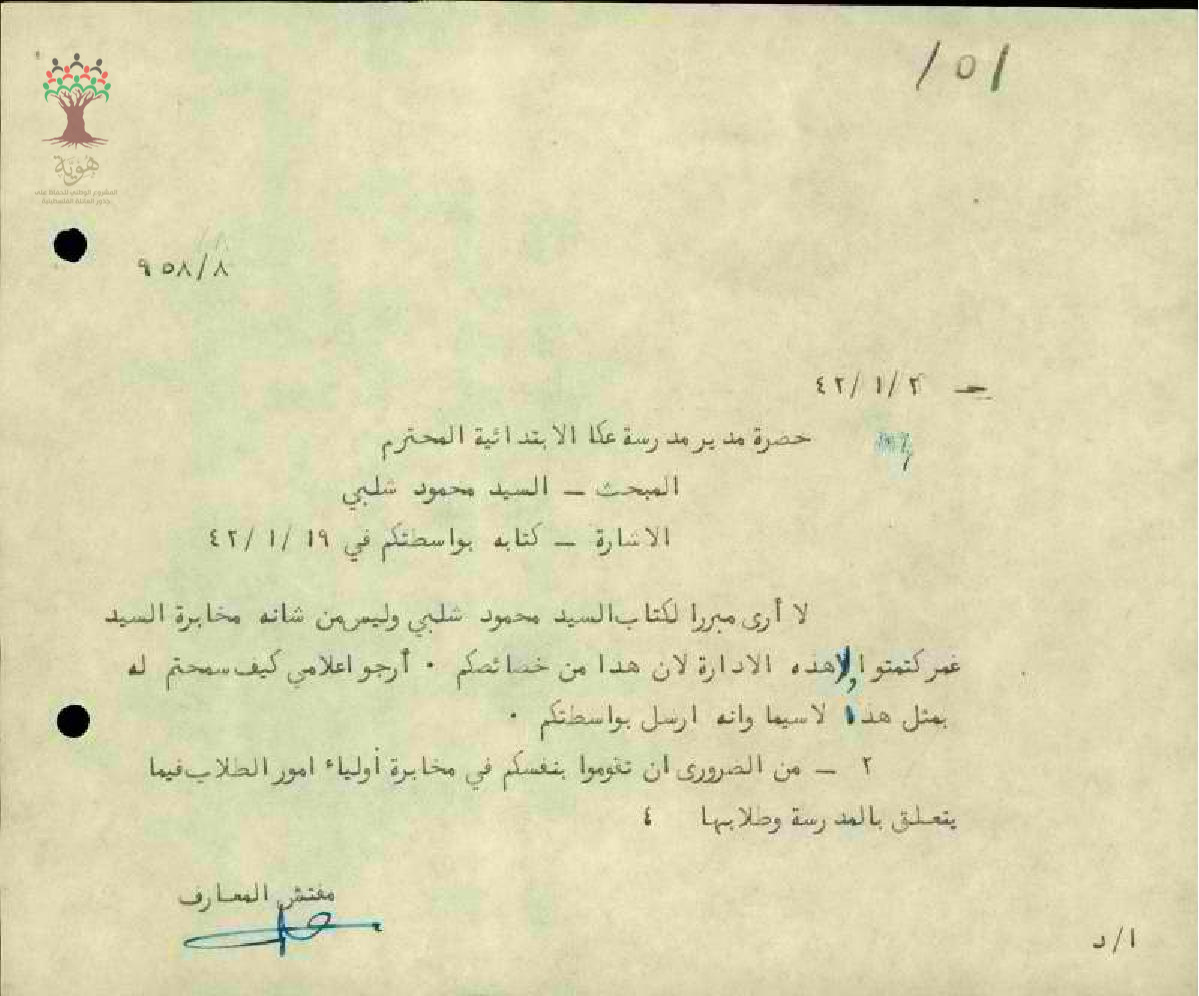 /٥١
هوية
المشروع الوطني للحفاظ على
جذور العائلة الفلسطينية
٩٥٨/٨
٤٢/١/٢
حضرة مدير مدرسة عكا الابتدائية المحترم
المبحث – السيد محمود شلبي
الاشارة – كتابه بواسطتكم في ٤٢/١/١٩
لا أرى مبررا لكتاب السيد محمود شلبي وليس من شانه مخابرة السيد
كتمتو لا هذه الادارة لان هذا من خصائصكم ٠ أرجو اعلامي كيف سمحتم له
بمثل هذا لاسيما وانه ارسل بواسطتكم ٠
٢ – من الضرورى ان تقوموا بنفسكم في مخابرة أولياء امور الطلاب فيما
يتعلق بالمدرسة وطلابها ٤
مفتش المعارف
ا/د